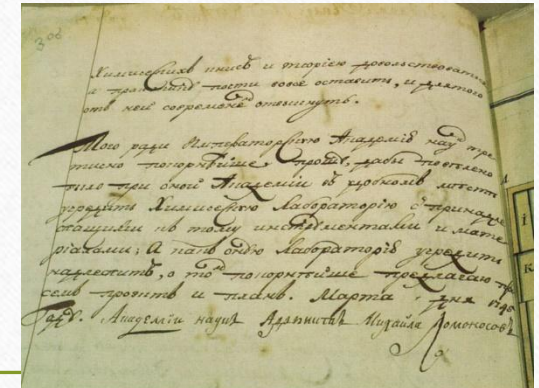 306
Химическихъ книгъ и теорiею
и практикѣ почти вовсе оставить, и для того
отъ неи современемъ отвыкнуть.
Того ради Императорскую Академiю наукъ
покорнѣйше прошу, дабы повелено
было при оной Академiи в удобномъ мѣстѣ
учредить Химическую Лабораторiю с принадле
жащими къ тому инструментами и мате
рiалами; А какъ оную Лабораторiю учредить
надлежитъ, о томъ покорнѣйше предлагаю при
семъ проэктъ и планъ. Марта дня
году. Академiи наукъ Адъюнктъ Михайла Ломоносовъ